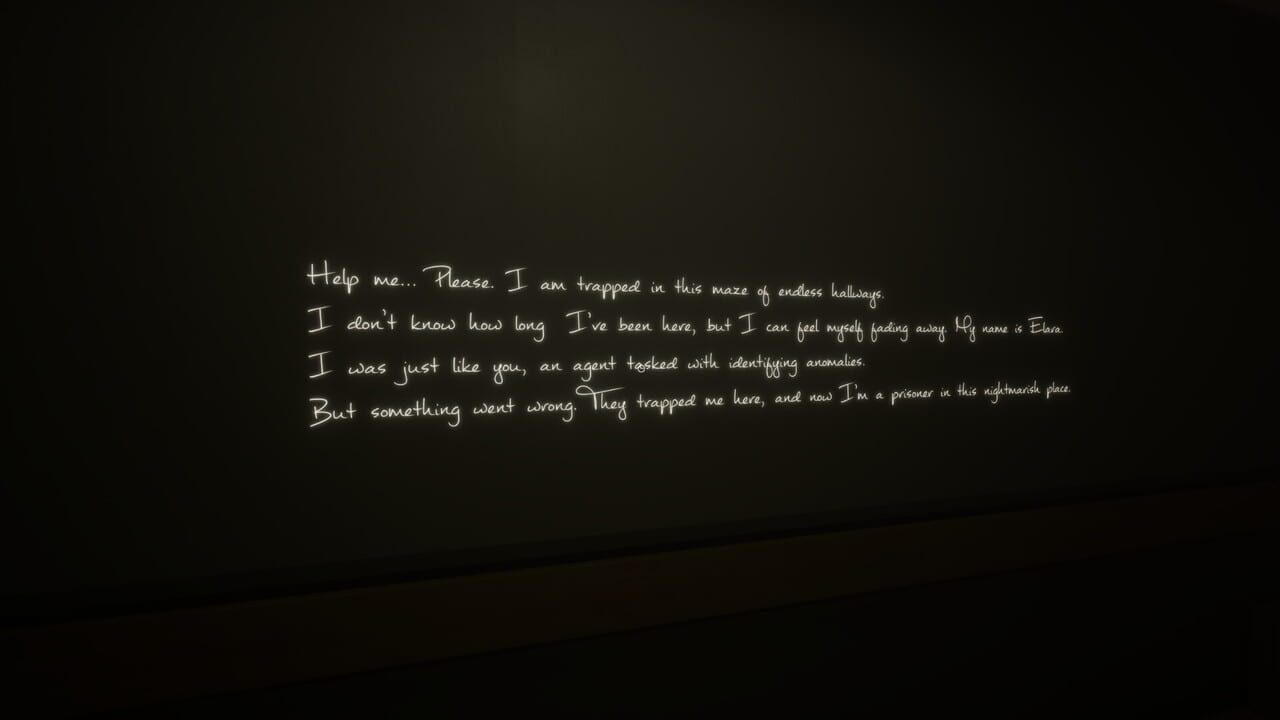 Help me... Please. I am trapped in this maze of endless hallways.
I don't know how long I've been here, but I can feel myself fading away. My name is Elara.
I was just like you, an agent tasked with identifying anomalies.
But something went wrong. They trapped me here, and now I'm a prisoner in this nightmarish place.